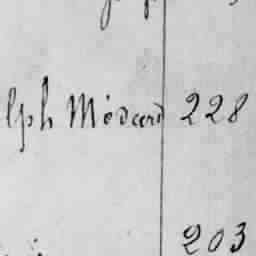 lph Médard 228
203